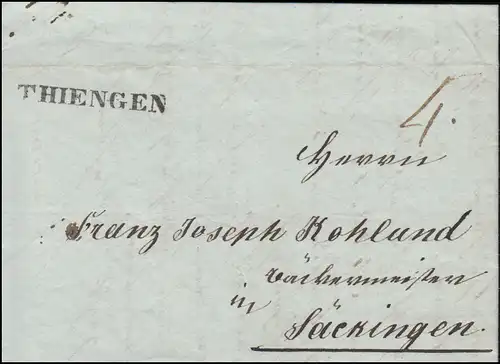 THIENGEN
4.
Herrn
Franz Joseph Kohlund
Bäckermeister
in
Säckingen.